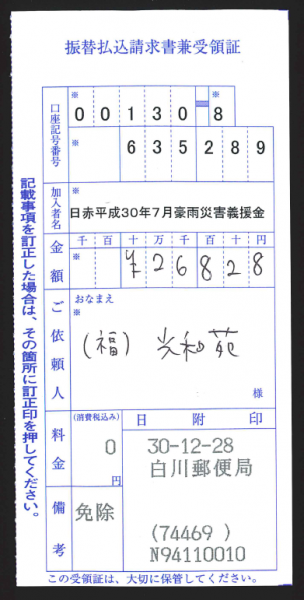 振替払込請求書兼受領証
口座記号番号
※
00130-8
※
635289
加入者名
日赤平成30年7月豪雨災害義援金
金額
千百十万千百十円
※
¥26828
ご依頼人
おなまえ
※
(福) 光和苑
様
料金
(消費税込み)
0
円
日附印
30-12-28
白川郵便局
(74469 )
N94110010
備考
免除
この受領証は、大切に保管してください。
記載事項を訂正した場合は、その箇所に訂正印を押してください。